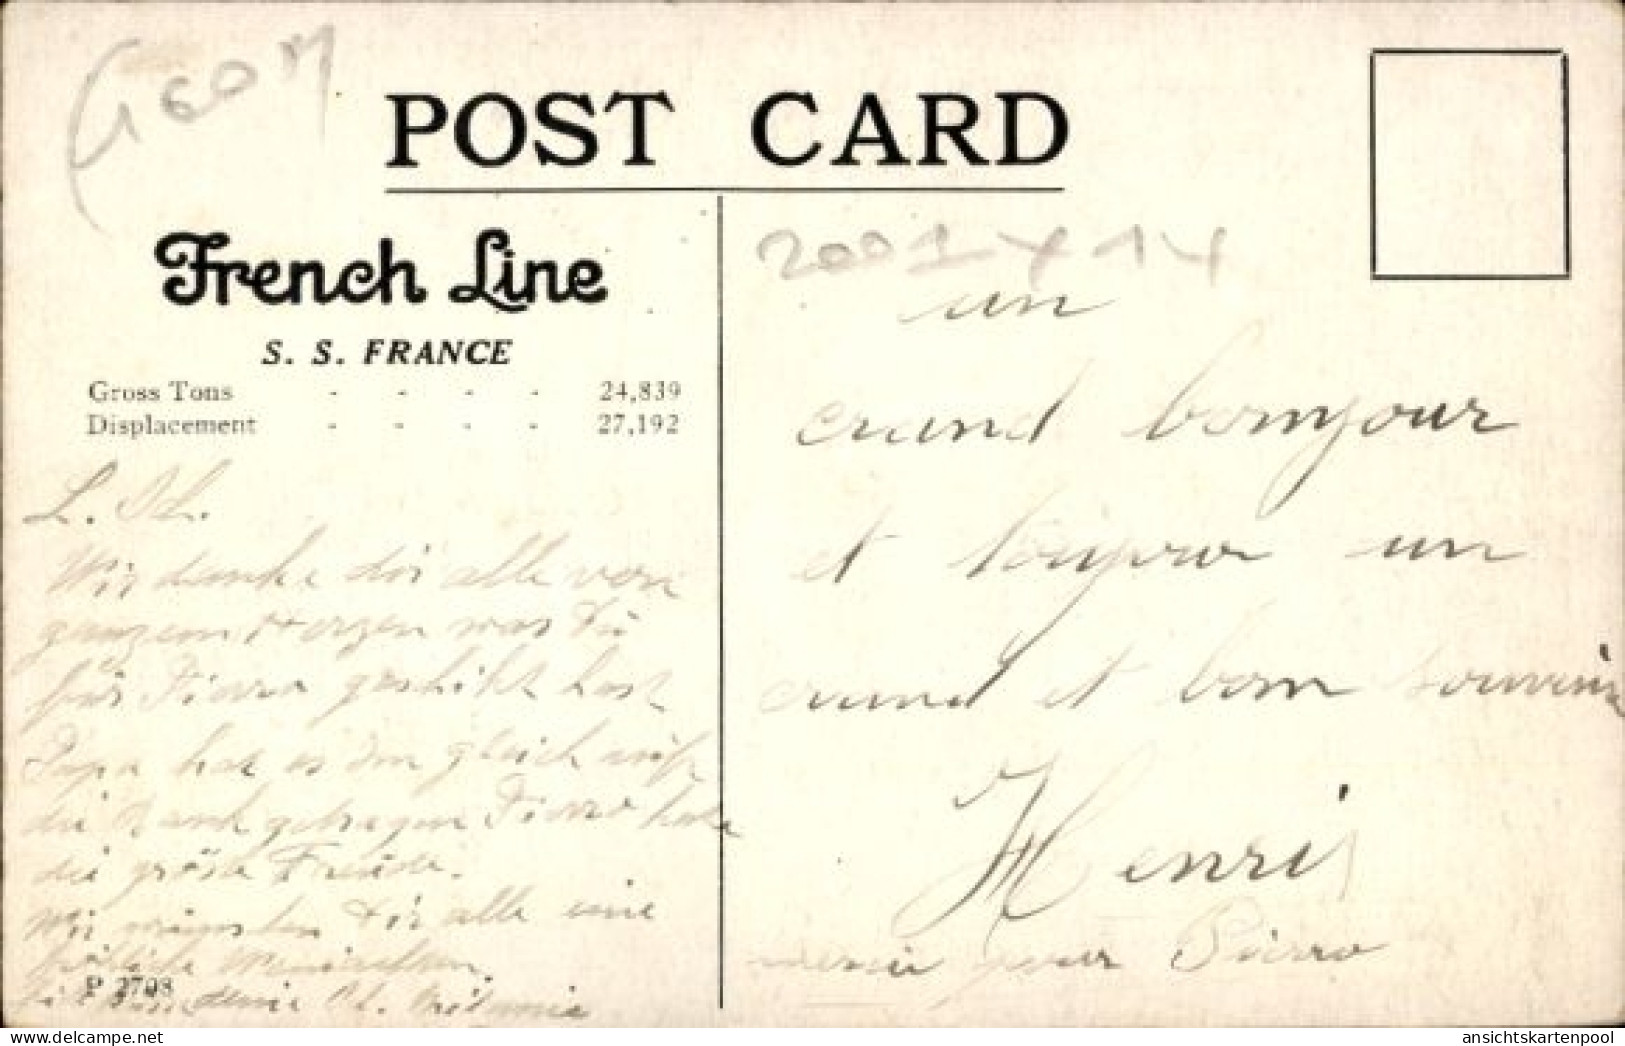 POST CARD
French Line
S. S. FRANCE
Gross Tons - - - - 24,839
Displacement - - - - 27,192
Wir danke dir alle von
ganzem Herzen was Du
für geschikt hast
Papa hat es gleich auf
die Bank getragen
die gröste Freude.
Wir wünschen Dir alle eine
fröliche
P 3708
un
crand bonjour
et toujour un
crand et bon souvenir
Henri
merci pour Pierro
ansichtskartenpool